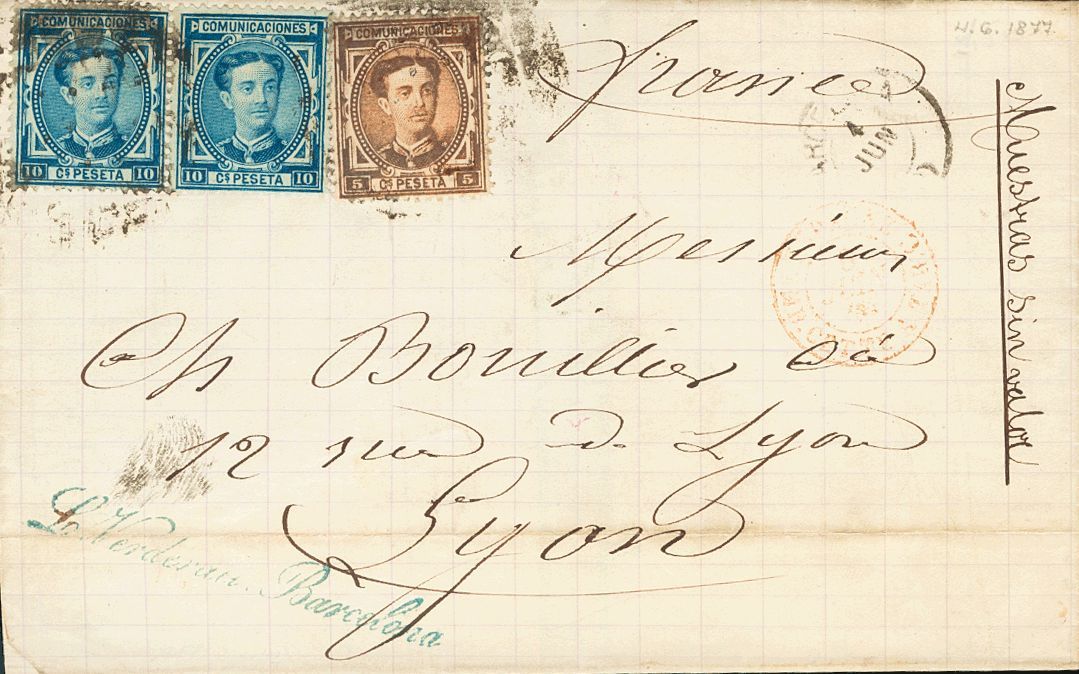 COMUNICACIONES
10 Cs PESETA 10
COMUNICACIONES
10 Cs PESETA 10
COMUNICACIONES
5 Cs PESETA 5
4.6.1877
france
4
JUN
Muestras sin valor
Messieurs
Ch Bouillier
12 rue de Lyon
Lyon
L. Verderau. Barcelona